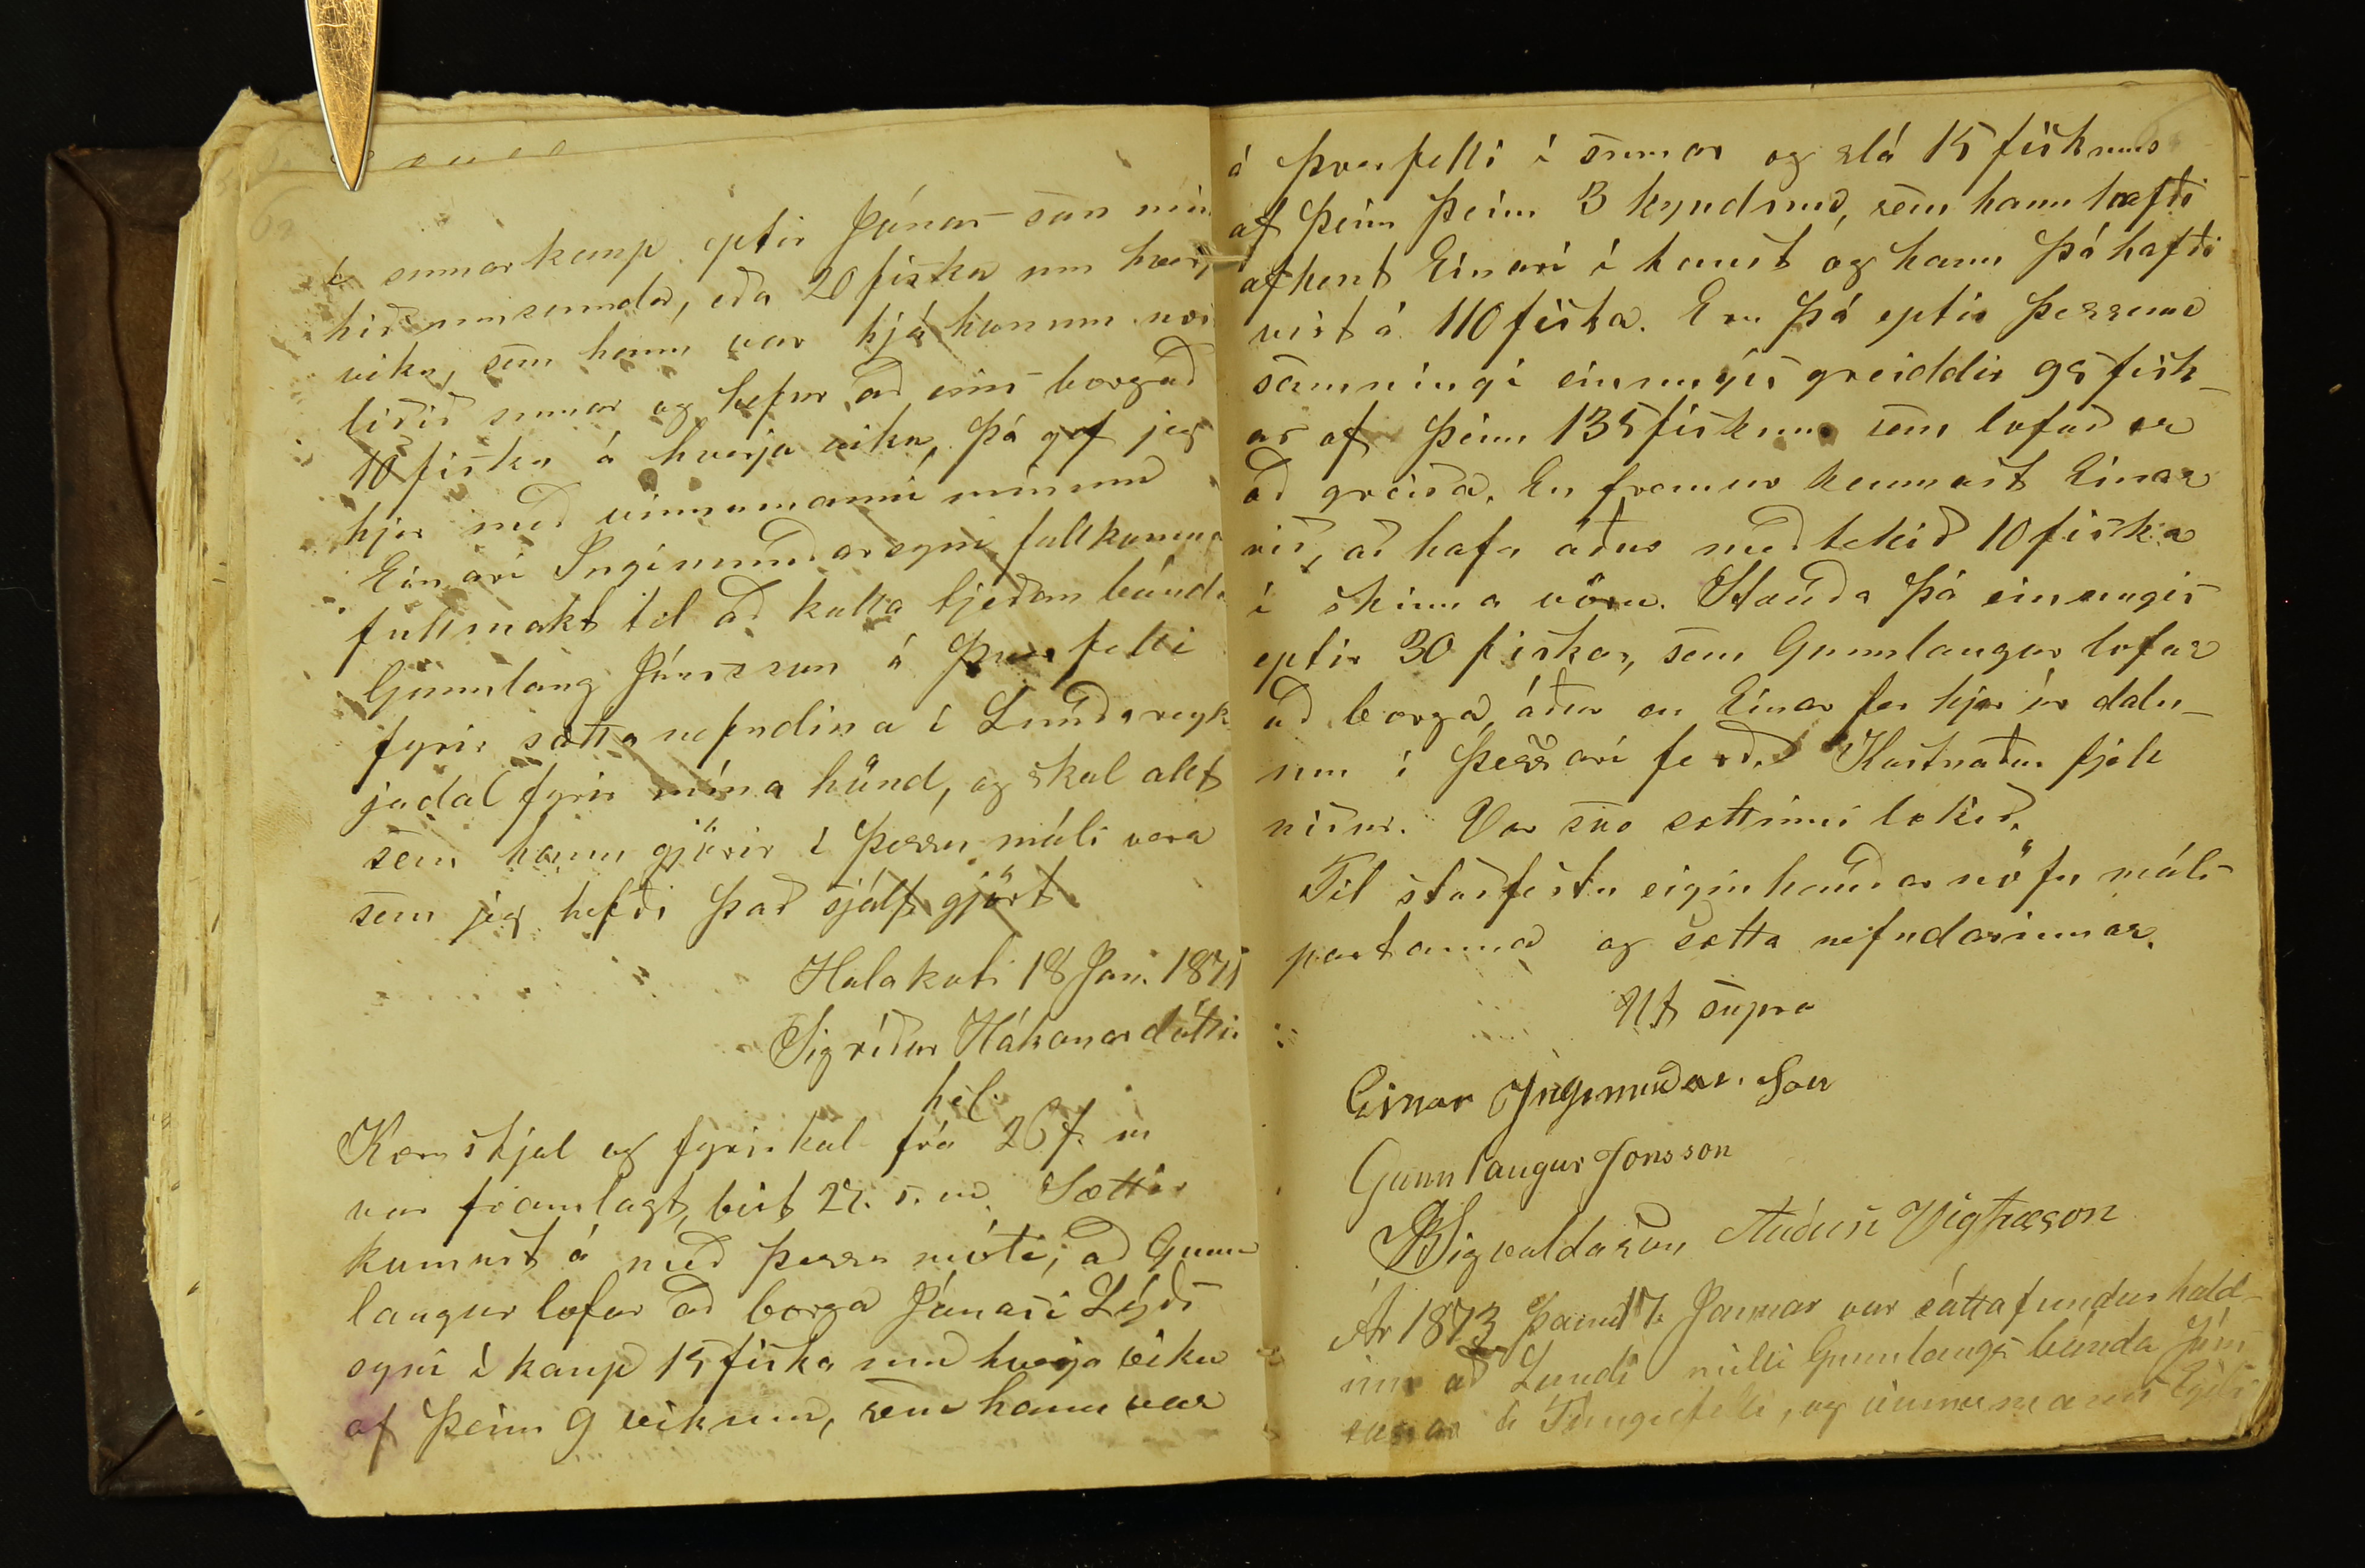 í sumarkaup eptir Jónas son minn
hið umsamda, eða 20 fiska um hverja
viku, sem hann var hjá honum næst
liðið sumar og hefur að eins borgað
10 fiska á hverja viku, þá gef jeg
hjer með vinnumanni mínum
Einari Ingimundarsyni fullkomna
fullmakt til að kalla tjeðan bónda
Gunnlaug Jónsson á Þverfelli
fyrir sættanefndina í Lundareyk
jadal fyrir mína hönd, og skal alt
sem hann gjörir í þessu máli vera
sem jeg hefði það sjálf gjört.
Halakoti 18 Jan. 1871
Sigríður Hákonardóttir
hel.
Kæruskjal og fyrirkal frá 26 f. m
var framlagt, birt 27. s. m. Sættir
komust á með þessu móti, að Gunn
laugur lofar að borga Jónasi Lýðs
syni í kaup 15 fiska um hverja viku
af þeim 9 vikum, sem hann var
á Þverfelli í sumar og slá 15 fiskum
af þeim þeim 3 kyndum, sem hann hafði
afhent Einari í haust og hann þá hafði
virt á 110 fiska. Eru þá eptir þessum
samningi einungis greiddir 95 fisk-
ar af þeim 135 fiskum sem lofað er
að greiða. En fremur kennast Einar
við, að hafa áður meðtekið 10 fiska
í skinna vöru. Standa þá einungis
eptir 30 fiskar, sem Gunnlaugur lofar
að borga, áður en Einar fer hjer úr daln-
um í þessari ferð. Kostnaður fjell
niður. Var svo sættinni lokið.
Til staðfestu eiginhandar nöfn máls
partanna og sætta nefndarinnar.
Ut supra
Einar Ingimundar. son
Gunnlaugur Jonsson
BSigvaldason Auðun Vigfusson
Ár 1873 þann 17. Januar var sáttafundur hald-
inn að Lundi milli Gunnlaugs bónda Jóns
sonar á Tungufelli, og vinnumanns Egils